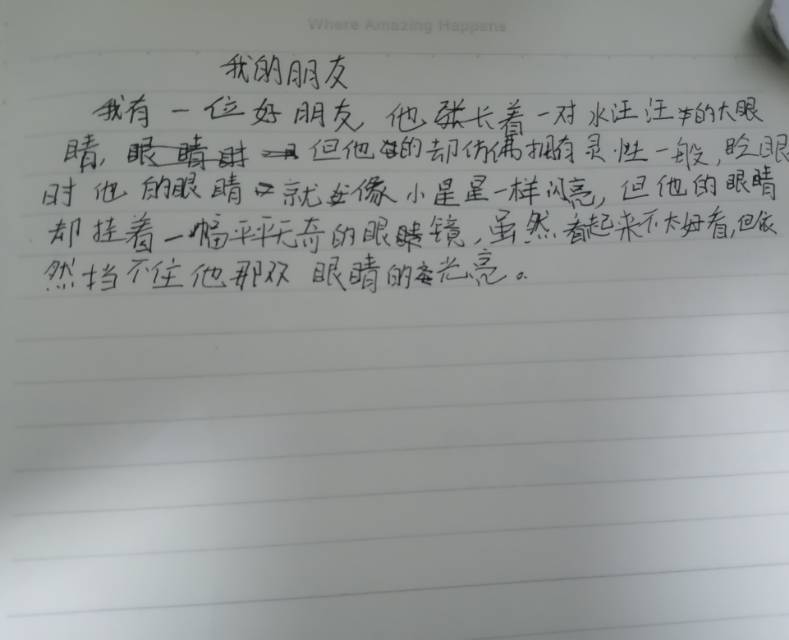 Where Amazing Happens
我的朋友
我有一位好朋友,他张长着一对水汪汪的大眼
睛,眼睛时但他的却仿佛拥有灵性一般,眨眼
时他的眼睛就像小星星一样闪亮,但他的眼睛
却挂着一幅平平无奇的眼睛镜,虽然看起来不太好看,但依
然挡不住他那双眼睛的光亮。